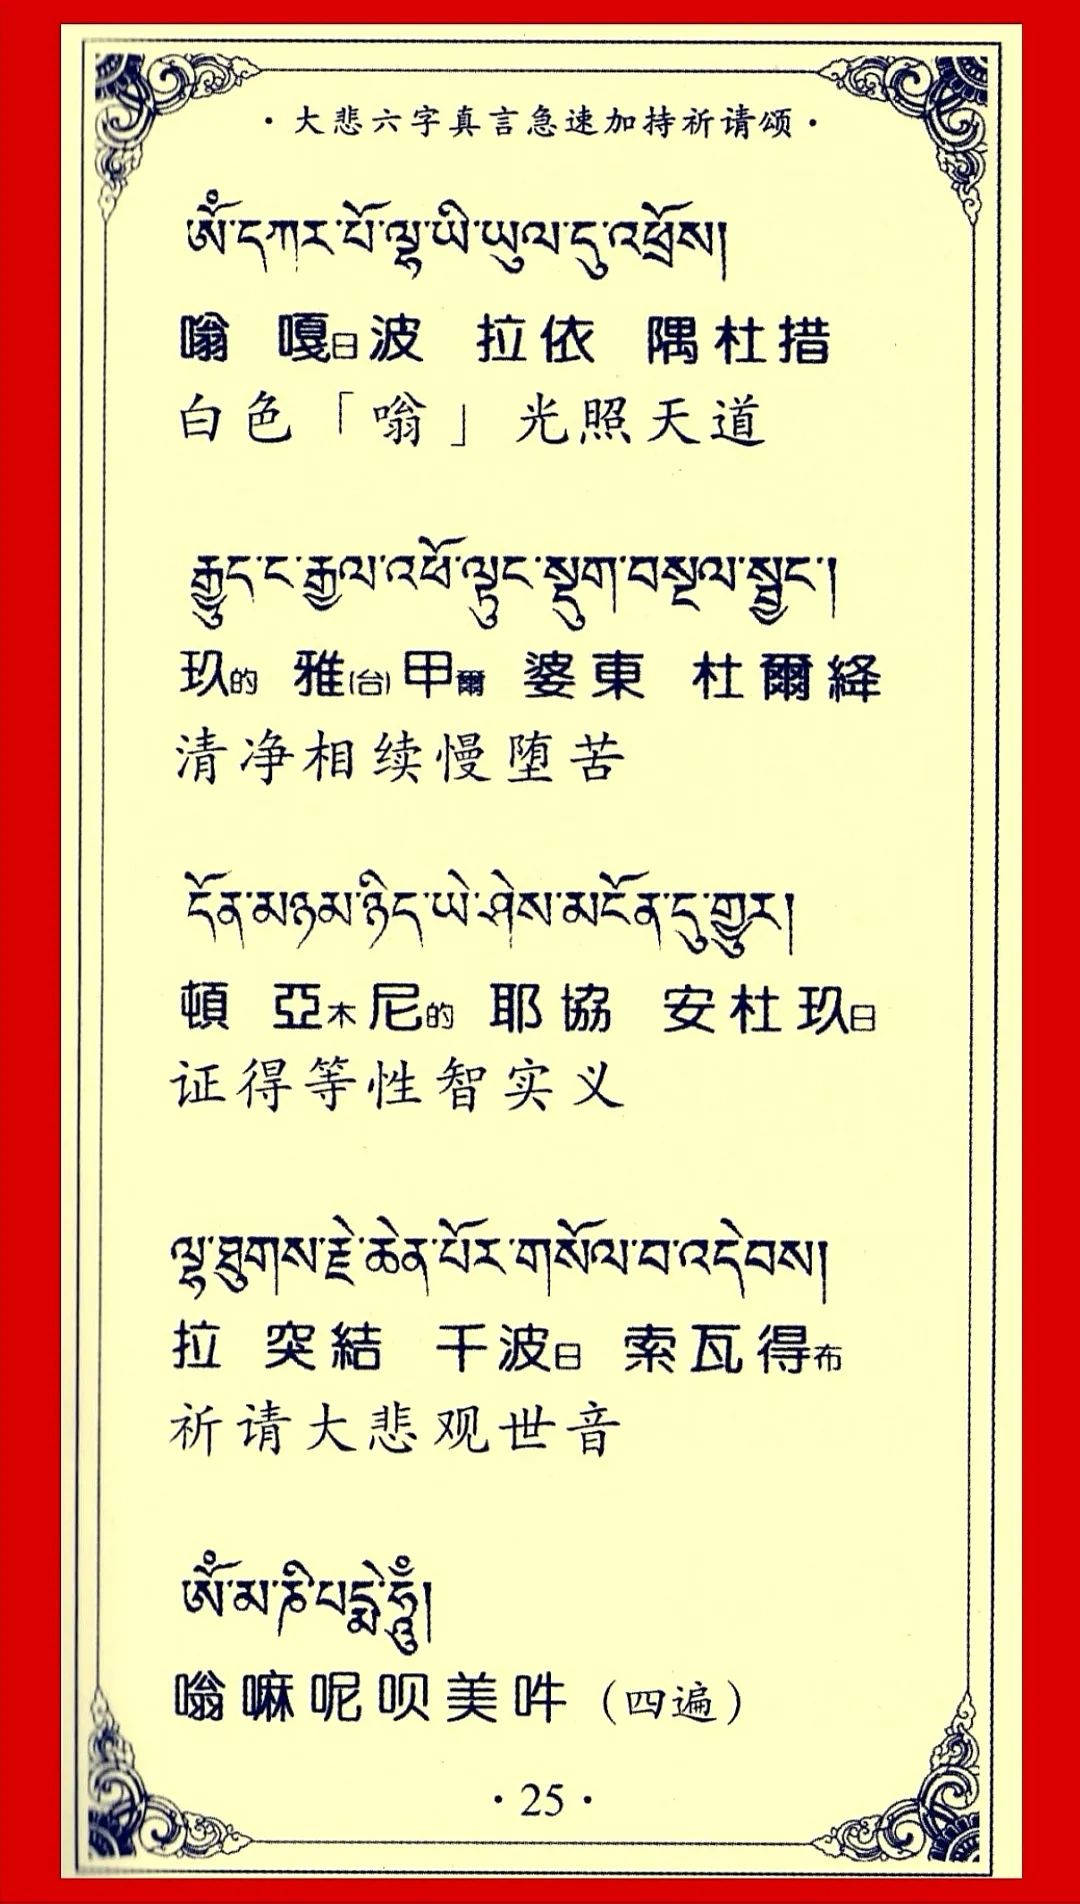 ·大悲六字真言急速加持祈请颂·
ཨོཾ་དཀར་པོ་ལྷ་ཡི་ཡུལ་དུ་འཕྲོས།
嗡 嘎日波 拉依 隅杜措
白色「嗡」光照天道
རྒྱུད་ང་རྒྱལ་འཕོ་ལྟུང་སྡུག་བསྔལ་སྦྱང་།
玖的 雅(台)甲爾 婆東 杜爾絳
清净相续慢堕苦
དོན་མཉམ་ཉིད་ཡེ་ཤེས་མངོན་དུ་གྱུར།
頓 亞木尼的 耶協 安杜玖日
证得等性智实义
ལྷ་ཐུགས་རྗེ་ཆེན་པོར་གསོལ་བ་འདེབས།
拉 突結 千波日 索瓦得布
祈请大悲观世音
ཨོཾ་མ་ཎི་པདྨེ་ཧཱུྃ།
嗡嘛呢呗美吽（四遍）
·25·